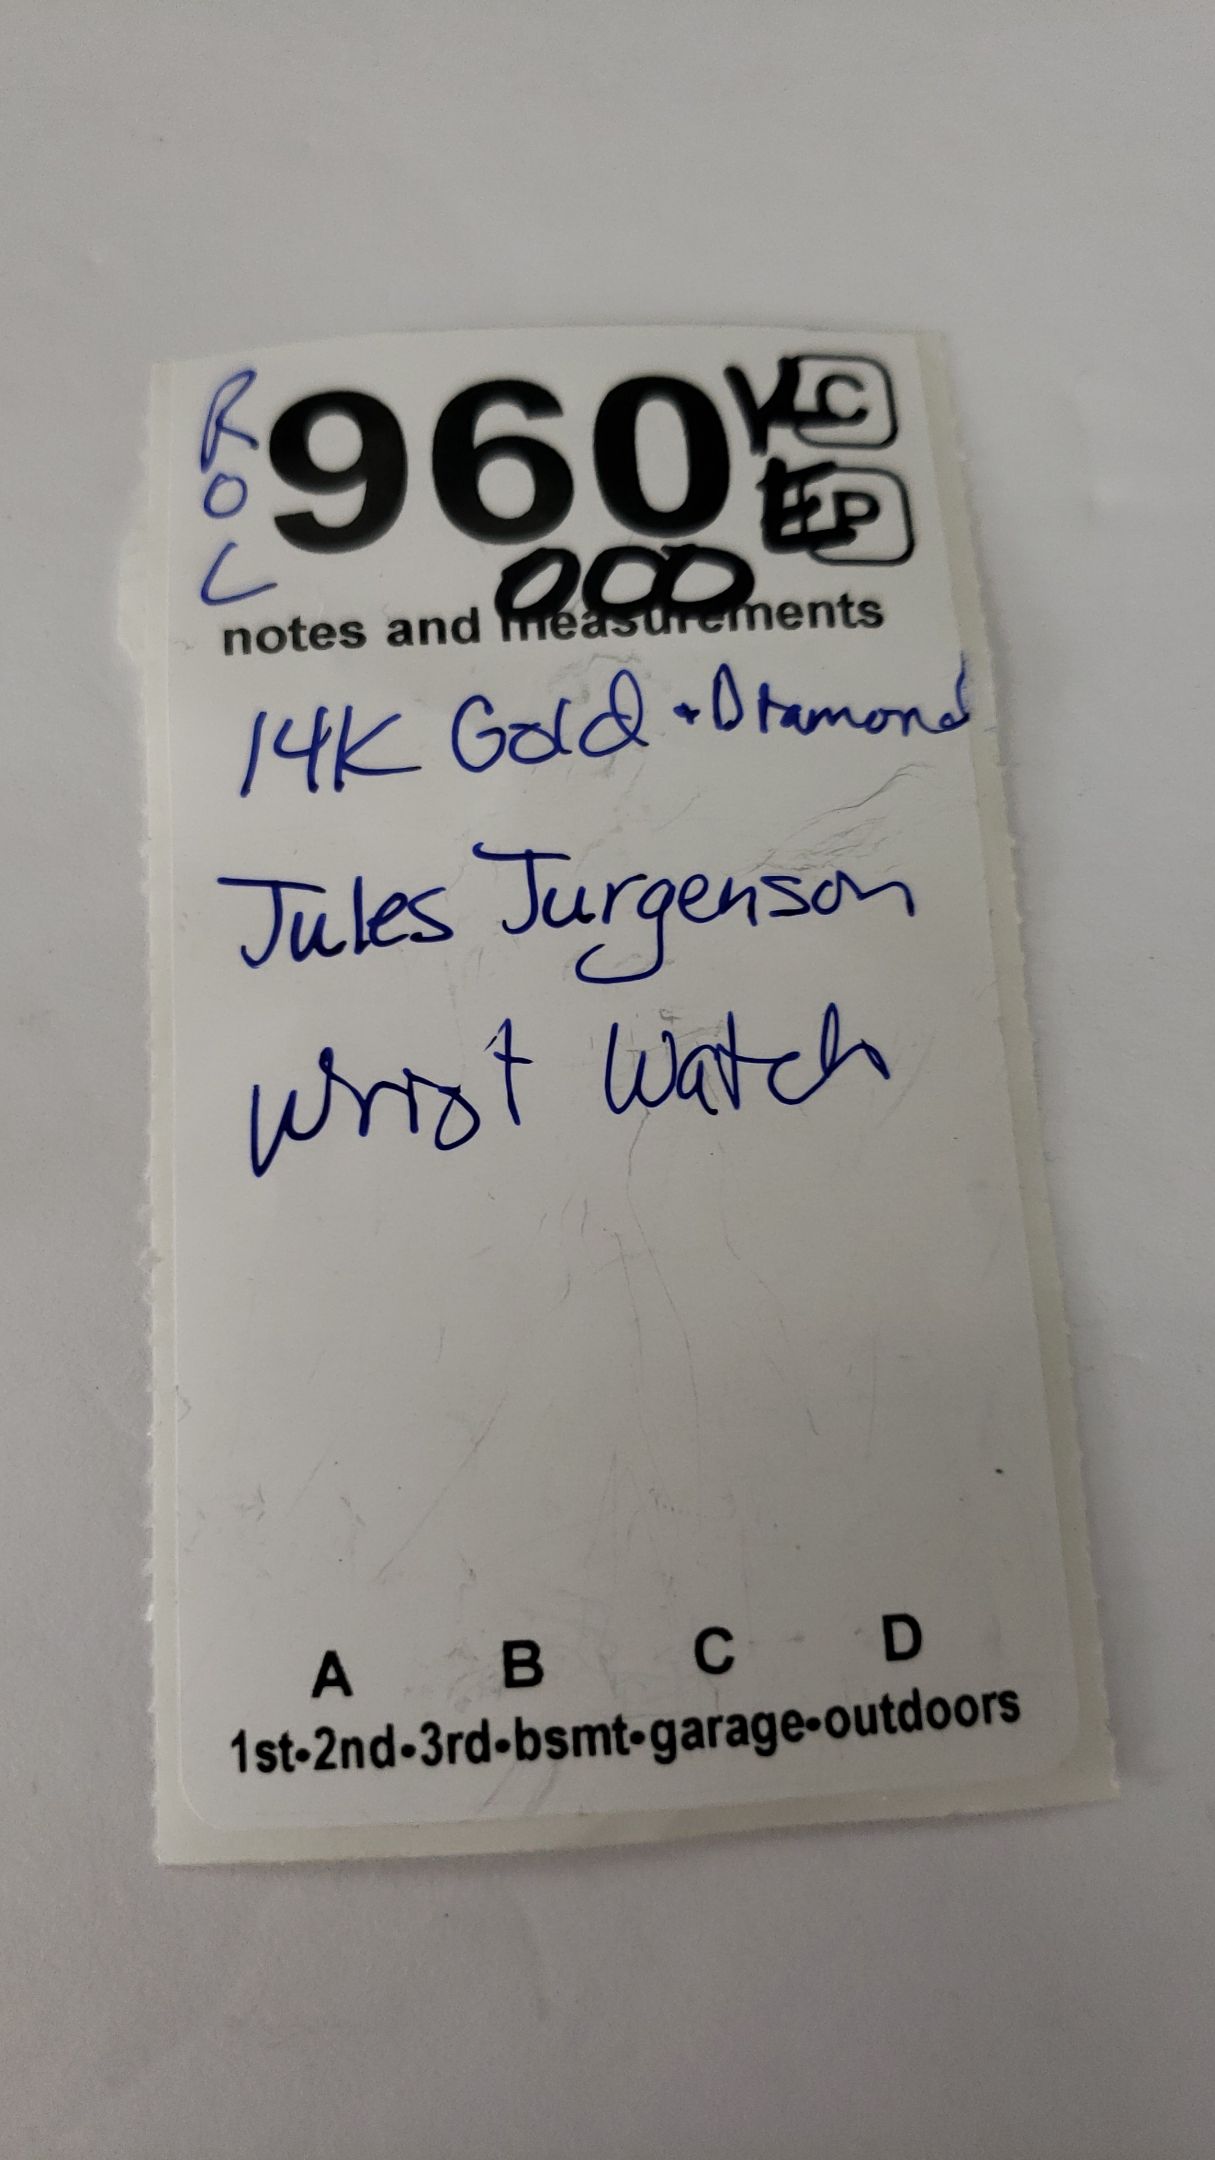 ROL
960
C
P
000
notes and measurements
14K Gold + Diamond
Jules Jurgenson
Wrist Watch
A B C D
1st•2nd•3rd•bsmt•garage•outdoors